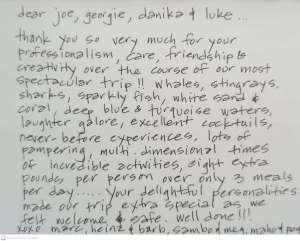 dear joe, georgie, danika & luke ...
thank you so very much for your
professionalism, care, friendship &
creativity over the course of our most
spectacular trip !! whales, stingrays,
sharks, sparkly fish, white sand &
coral, deep blue & turquoise waters,
laughter galore, excellent cocktails,
never-before experiences, lots of
pampering, multi-dimensional times
of incredible activities, eight extra
pounds per person over only 3 meals
per day..... your delightful personalities
made our trip extra special as we
felt welcome & safe. well done!!!
xoxo marc, heinz & barb, sambo & meg, maho &